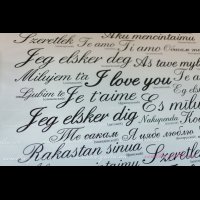 Szeretlek Aku mencintaimu
Te amo Ti amo
Jeg elsker deg As tave myl
Milujem ťa I love you
Ljubim te Je t'aime Es milu
Jeg elsker dig Nakupenda
Те сакам Я цябе люблю
Rakastan sinua Szeretlek